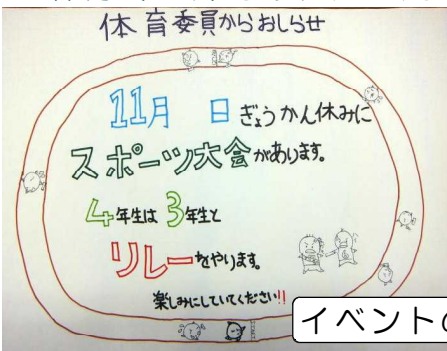 体育委員からおしらせ
11月 日ぎょうかん休みに
スポーツ大会があります。
4年生は3年生と
リレーをやります。
楽しみにしていてください!!
イベントの